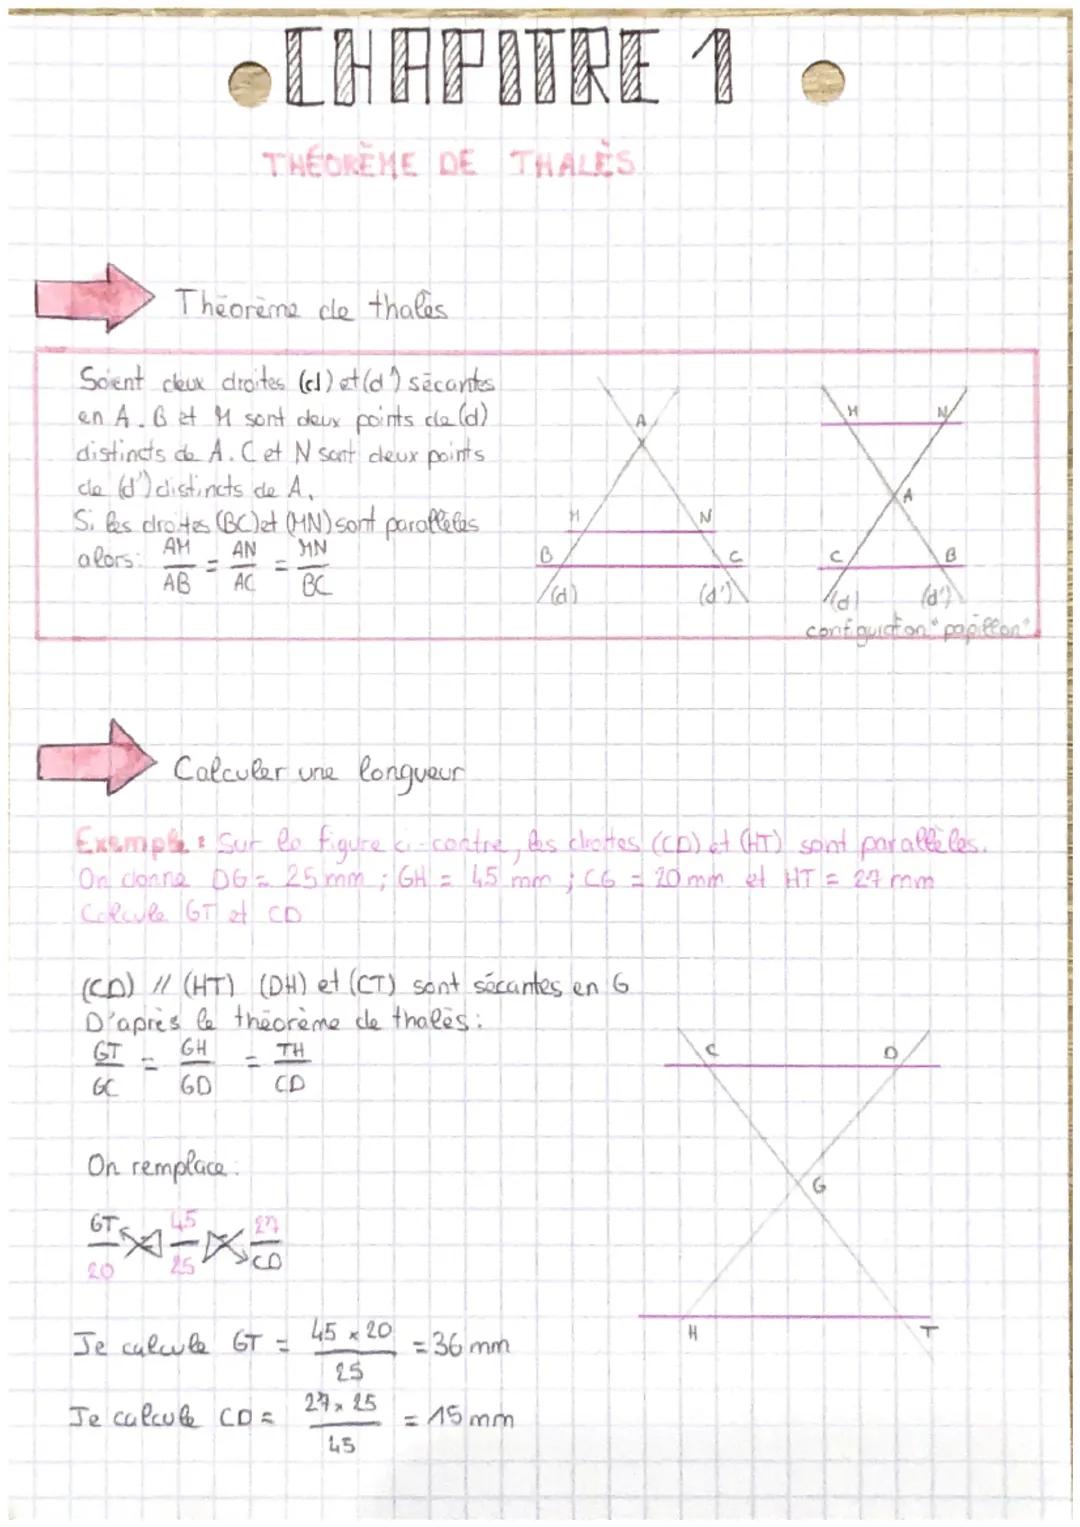 CHAPITRE 1
THÉORÈME DE THALÈS
Théorème de thalès
Soient deux droites (d) et (d') sécantes
en A. B et M sont deux points de (d)
distincts de A. C et N sont deux points
de (d') distincts de A.
Si les droites (BC) et (MN) sont parallèles
alors: AM/AB = AN/AC = MN/BC
A
M N
B C
(d) (d')
M N
A
C B
(d) (d')
configuration "papillon"
Calculer une longueur
Exemple : Sur la figure ci-contre, les droites (CD) et (HT) sont parallèles.
On donne DG = 25 mm ; GH = 45 mm ; CG = 20 mm et HT = 27 mm
Calcule GT et CD
(CD) // (HT) (DH) et (CT) sont sécantes en G
D'après le théorème de thalès :
GT/GC = GH/GD = TH/CD
On remplace :
GT/20 = 45/25 = 27/CD
Je calcule GT = 45 × 20 / 25 = 36 mm
Je calcule CD = 27 × 25 / 45 = 15 mm
C D
G
H T